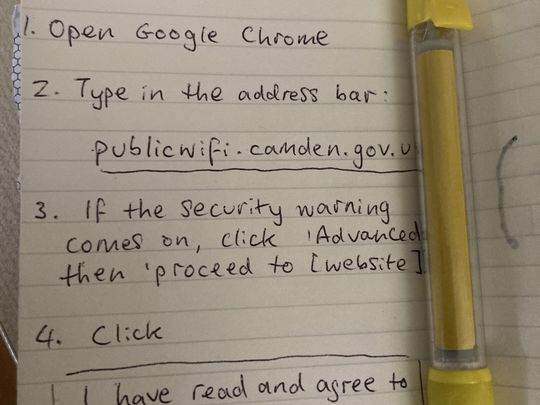 1. Open Google Chrome
2. Type in the address bar:
publicwifi.camden.gov.u
3. If the security warning
comes on, click 'Advanced
then 'proceed to [website]
4. Click
I have read and agree to